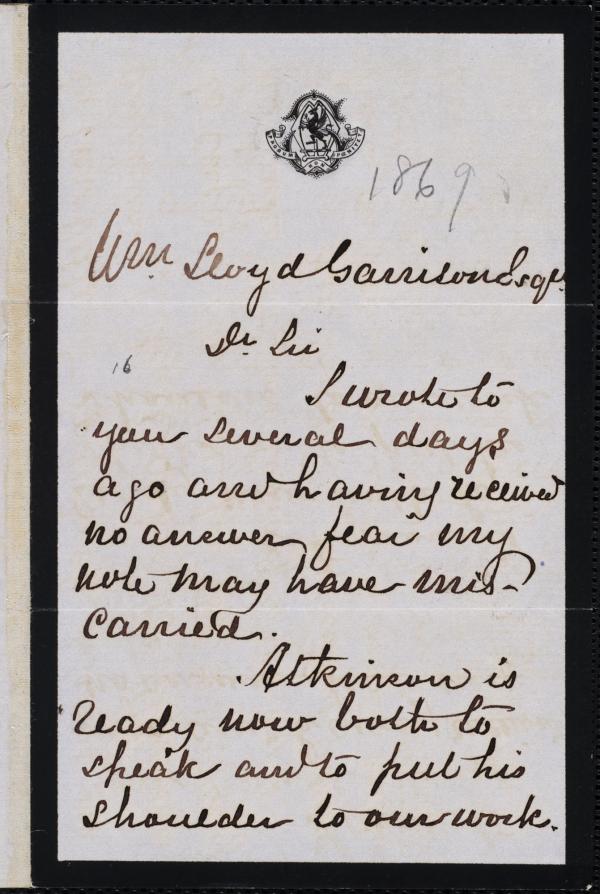 1869
Wm. Lloyd Garrison Esqr.
Dr. Sir
16
I wrote to
you several days
ago and having received
no answer, fear my
note may have mis-
carried.
Atkinson is
ready now both to
speak and to put his
shoulder to our work.